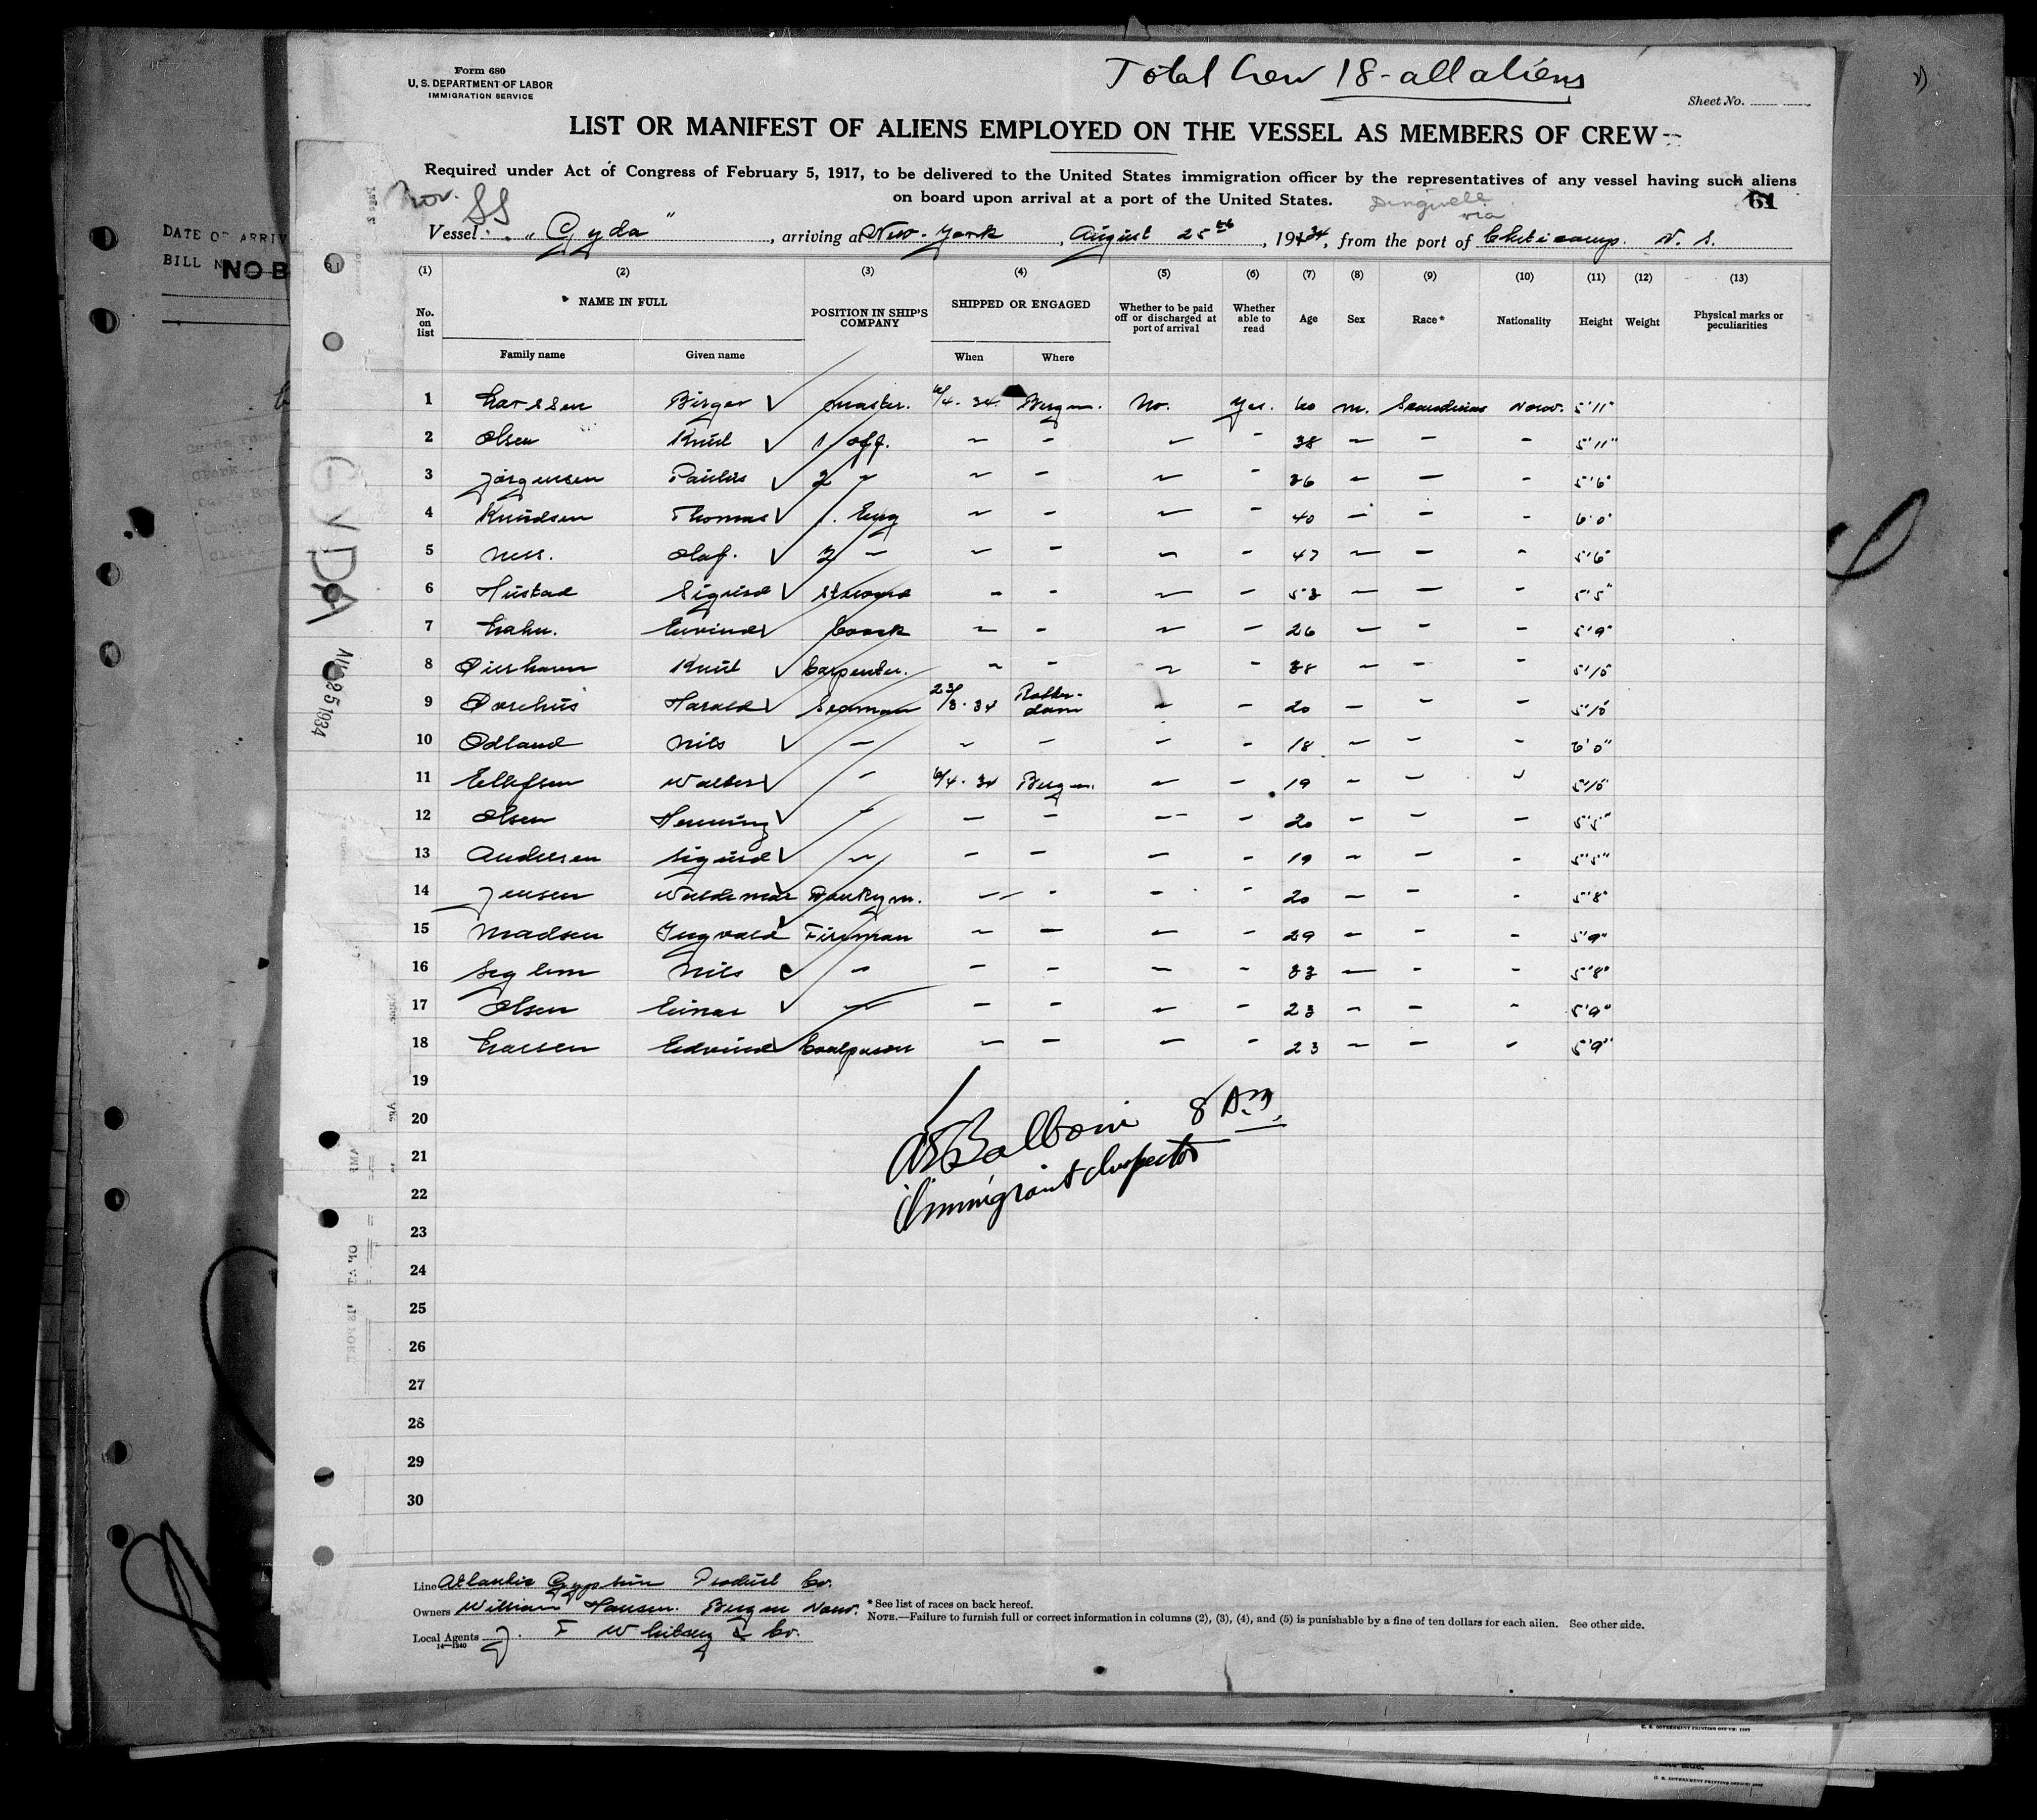 Form 680
U. S. DEPARTMENT OF LABOR
IMMIGRATION SERVICE
Total Crew 18 - all aliens
Sheet No.
LIST OR MANIFEST OF ALIENS EMPLOYED ON THE VESSEL AS MEMBERS OF CREW
Required under Act of Congress of February 5, 1917, to be delivered to the United States immigration officer by the representatives of any vessel having such aliens
on board upon arrival at a port of the United States.
Nor. SS
Dingwell via
61
Vessel "Gyda", arriving at New-York, August 25th, 1934, from the port of Cheticamp. N. S.
DATE OF ARRIV
BILL N
NO B
GYDA
AUG 25 1934
(1) (2) (3) (4) (5) (6) (7) (8) (9) (10) (11) (12) (13)
No. on list
NAME IN FULL
Family name Given name
POSITION IN SHIP'S COMPANY
SHIPPED OR ENGAGED
When Where
Whether to be paid off or discharged at port of arrival
Whether able to read
Age Sex Race* Nationality Height Weight
Physical marks or peculiarities
1 Larssen Birger master. 6/4-34 Bergen. No. yes. 40 m. Scandinav Norw. 5'11"
2 Olsen Knut 1/off. 38 5'11"
3 Jörgensen Paulus 2 " 36 5'6"
4 Knudsen Thomas 1. Eng 40 6'0"
5 Ness. Olaf. 2 - 47 5'6"
6 Hustad Sigurd Steward 53 5'5"
7 Eivind Coock 26 5'9"
8 Knut Carpenter. 38 5'10"
9 Harald Seaman 23/3-34 Rotterdam 20 5'10"
10 Odland Nils - 18 6'0"
11 Ellefsen Walter - 6/4-34 Bergen. 19 5'10"
12 Olsen Henning - 20 5'5"
13 Andersen Sigurd - 19 5'5"
14 Jensen Waldemar Donkeym. 20 5'8"
15 Madsen Ingvald Fireman 29 5'9"
16 Nils - 33 5'8"
17 Olsen Einar - 23 5'9"
18 Larsen Edvind 23 5'9"
19
20
21
22
23
24
25
26
27
28
29
30
Balboni 8 AM
Immigrant Inspector
Line Atlantic Gypsum Product Co.
Owners William Hansen. Bergen Norw.
Local Agents J. F Whitney & Co.
14—1240
* See list of races on back hereof.
NOTE.—Failure to furnish full or correct information in columns (2), (3), (4), and (5) is punishable by a fine of ten dollars for each alien. See other side.